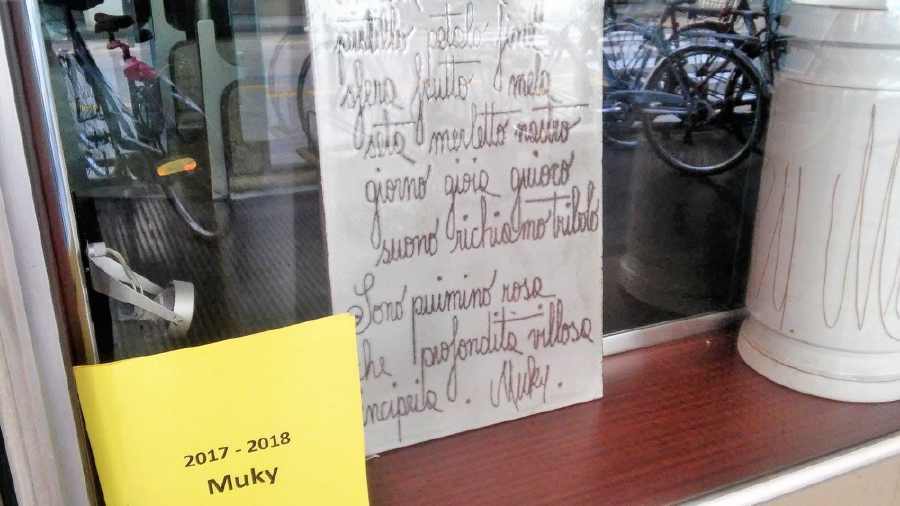 petalo
sfera frutto mela
seta merletto nastro
giorno gioia giuoco
suono richiamo trillo
Sono piumino rosa
che profondità villosa
incipria. Muky.
2017 - 2018
Muky